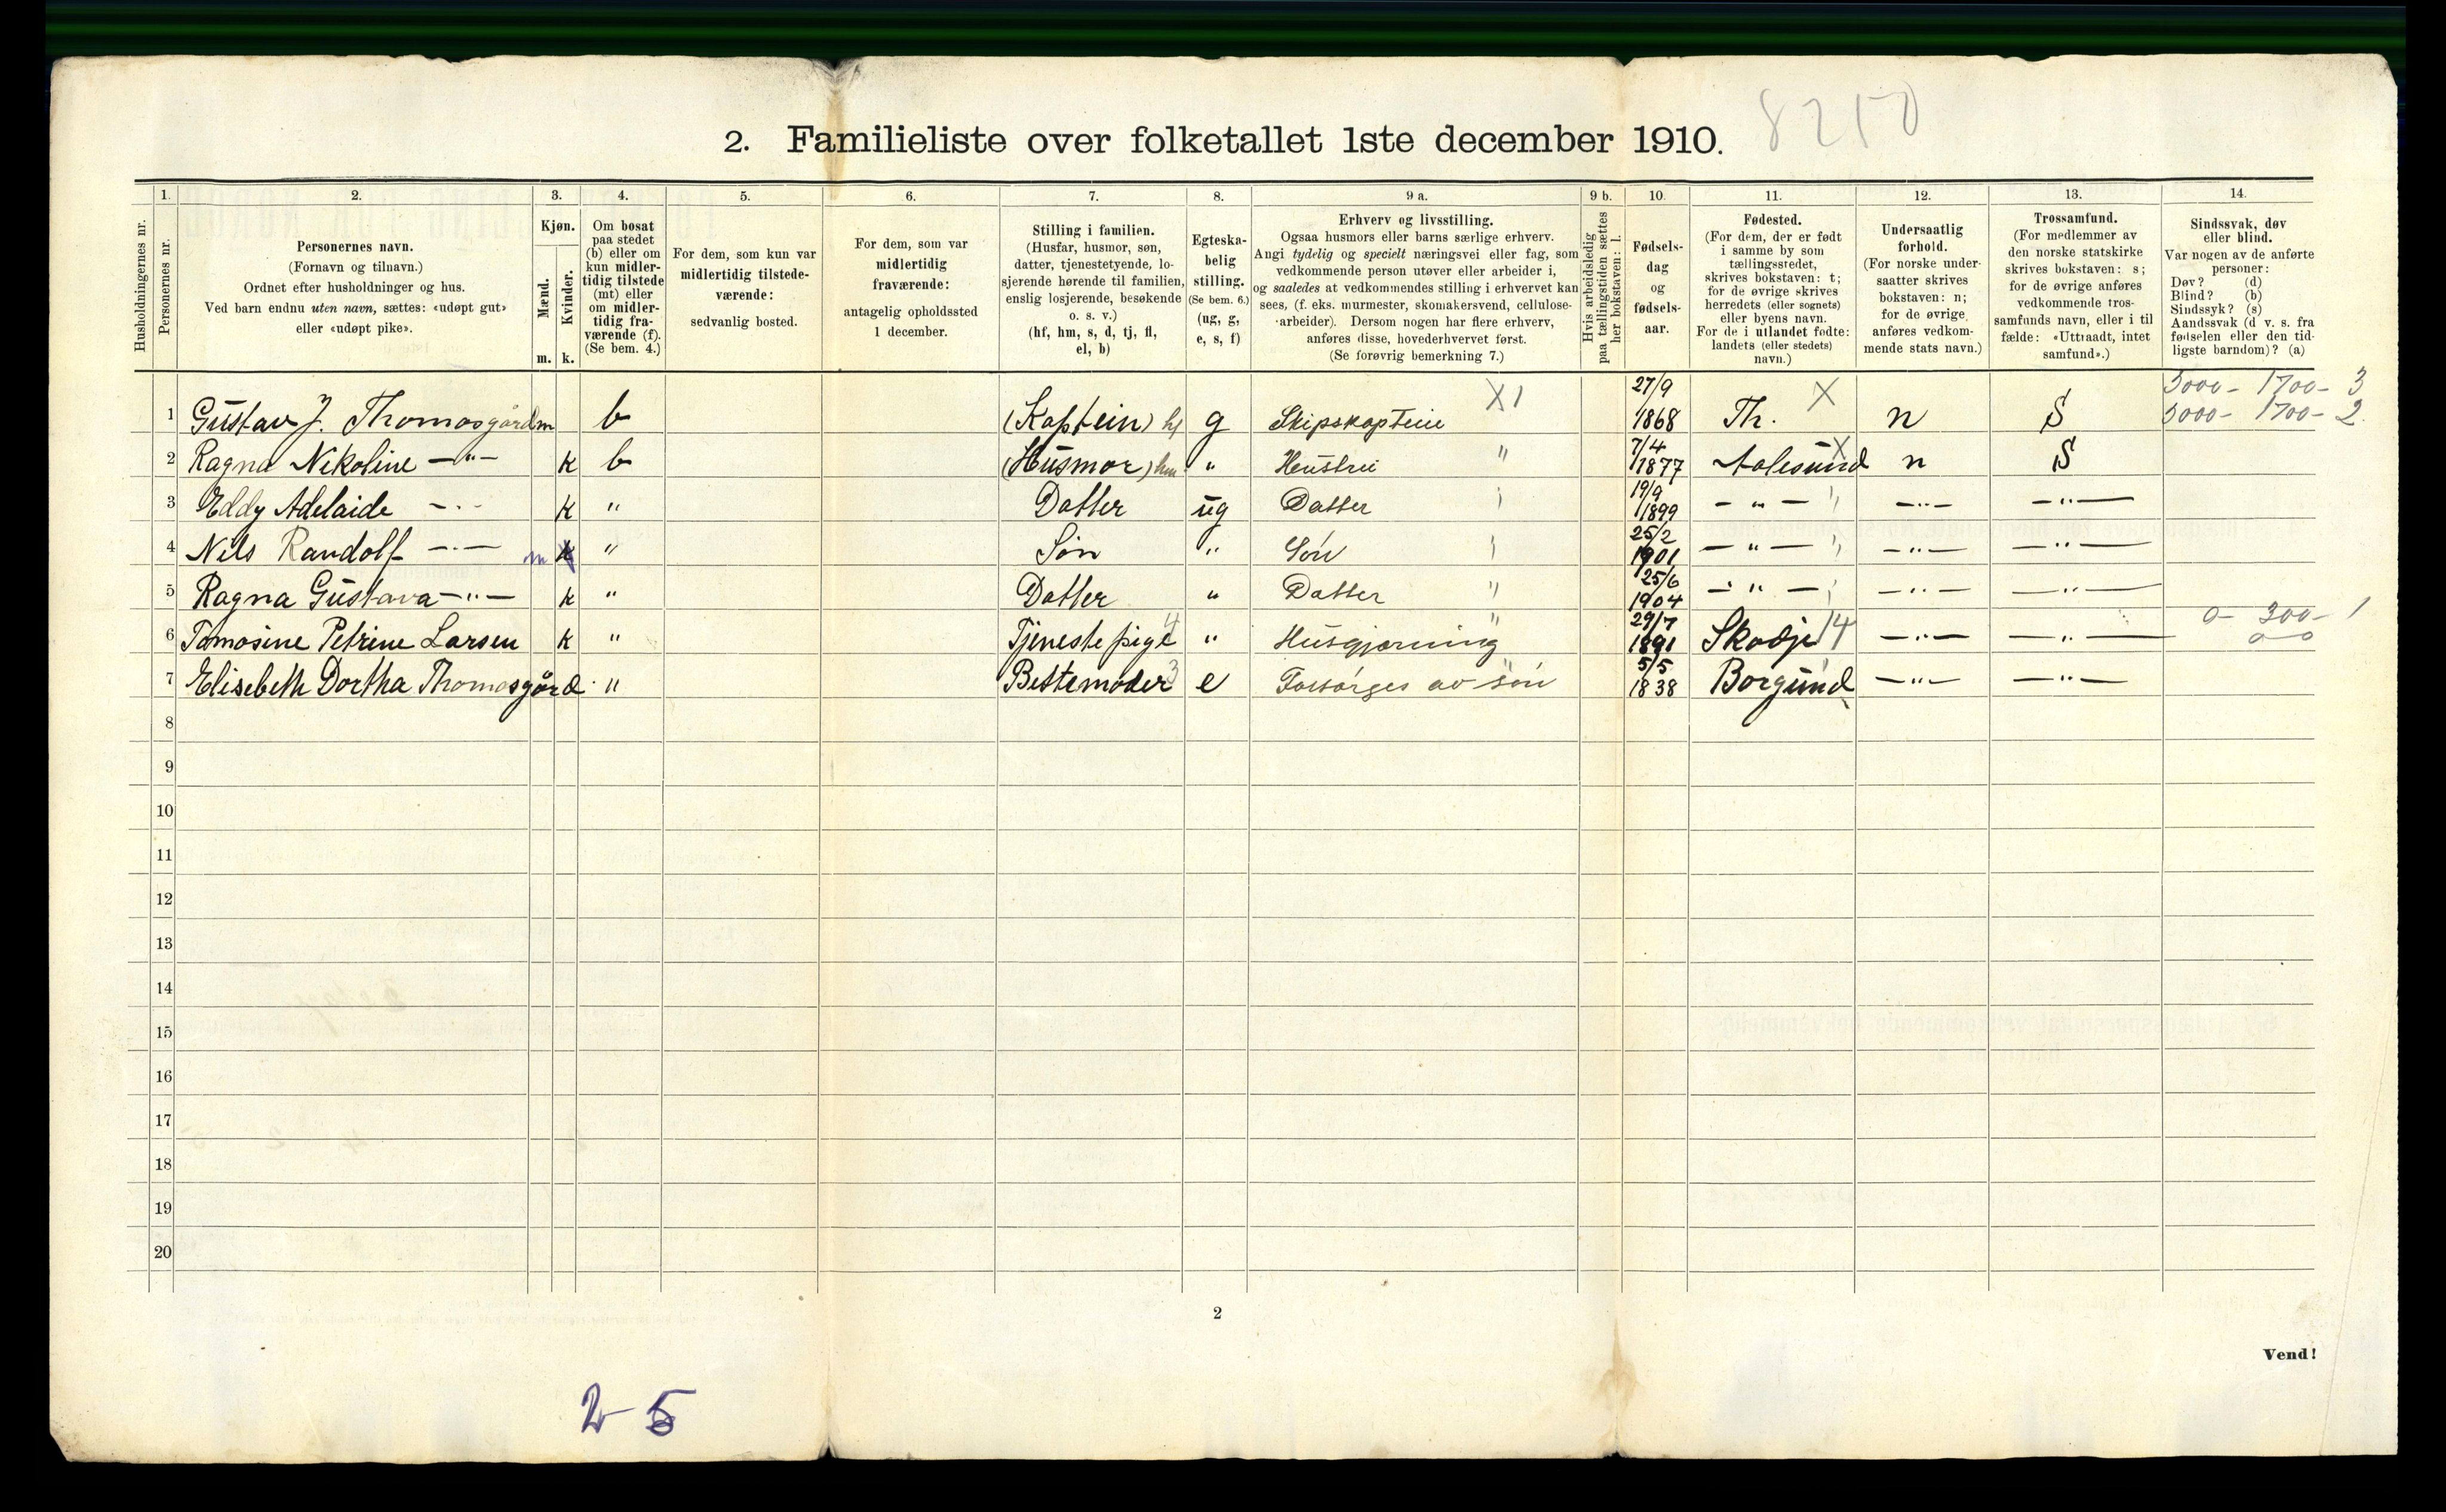 8210
2. Familieliste over folketallet 1ste december 1910.
Husholdningernes nr.
1. Personernes nr.
2. Personernes navn. (Fornavn og tilnavn.) Ordnet efter husholdninger og hus. Ved barn endnu uten navn, sættes: «udøpt gut» eller «udøpt pike».
3. Kjøn. Mænd. m. Kvinder. k.
4. Om bosat paa stedet (b) eller om kun midlertidig tilstede (mt) eller om midlertidig fraværende (f). (Se bem. 4.)
5. For dem, som kun var midlertidig tilstedeværende: sedvanlig bosted.
6. For dem, som var midlertidig fraværende: antagelig opholdssted 1 december.
7. Stilling i familien. (Husfar, husmor, søn, datter, tjenestetyende, losjerende hørende til familien, enslig losjerende, besøkende o. s. v.) (hf, hm, s, d, tj, fl, el, b)
8. Egteskabelig stilling. (Se bem. 6.) (ug, g, e, s, f)
9 a. Erhverv og livsstilling. Ogsaa husmors eller barns særlige erhverv. Angi tydelig og specielt næringsvei eller fag, som vedkommende person utøver eller arbeider i, og saaledes at vedkommendes stilling i erhvervet kan sees, (f. eks. murmester, skomakersvend, cellulosearbeider). Dersom nogen har flere erhverv, anføres disse, hovederhvervet først. (Se forøvrig bemerkning 7.)
9 b. Hvis arbeidsledig paa tællingstiden sættes her bokstaven: l.
10. Fødselsdag og fødselsaar.
11. Fødested. (For dem, der er født i samme by som tællingsstedet, skrives bokstaven: t; for de øvrige skrives herredets (eller sognets) eller byens navn. For de i utlandet fødte: landets (eller stedets) navn.)
12. Undersaatlig forhold. (For norske undersaatter skrives bokstaven: n; for de øvrige anføres vedkommende stats navn.)
13. Trossamfund. (For medlemmer av den norske statskirke skrives bokstaven: s; for de øvrige anføres vedkommende trossamfunds navn, eller i tilfælde: «Uttraadt, intet samfund».)
14. Sindssvak, døv eller blind. Var nogen av de anførte personer: Døv? (d) Blind? (b) Sindssyk? (s) Aandssvak (d v. s. fra fødselen eller den tidligste barndom)? (a)
3000- 1700- 3
1 Gustav J. Thomasgård m b (Kaptein) hf g Skipskaptein X1 27/9 1868 Th. X n S 3000- 1700- 2
2 Ragna Nikoline -"- k b (Husmor) hm " Hustru " 7/4 1877 Aalesund X n S
3 Eddy Adelaide -"- k " Datter ug Datter 19/9 1899 -"- -"- -"-
4 Nils Randolf -"- m k " Søn " Søn 25/2 1901 -"- -"- -"-
5 Ragna Gustava -"- k " Datter " Datter " 25/6 1904 -"- -"- -"-
6 Tomosine Petrine Larsen k " Tjenestepige 4 " Husgjørning " 29/7 1891 Skodje 14 -"- -"- 0- 300- 1
0-0
7 Elisebeth Dortha Thomasgård " Bestemoder 3 e Forsørges av søn 5/5 1838 Borgund -"- -"-
8
9
10
11
12
13
14
15
16
17
18
19
20
2
Vend!
2-5